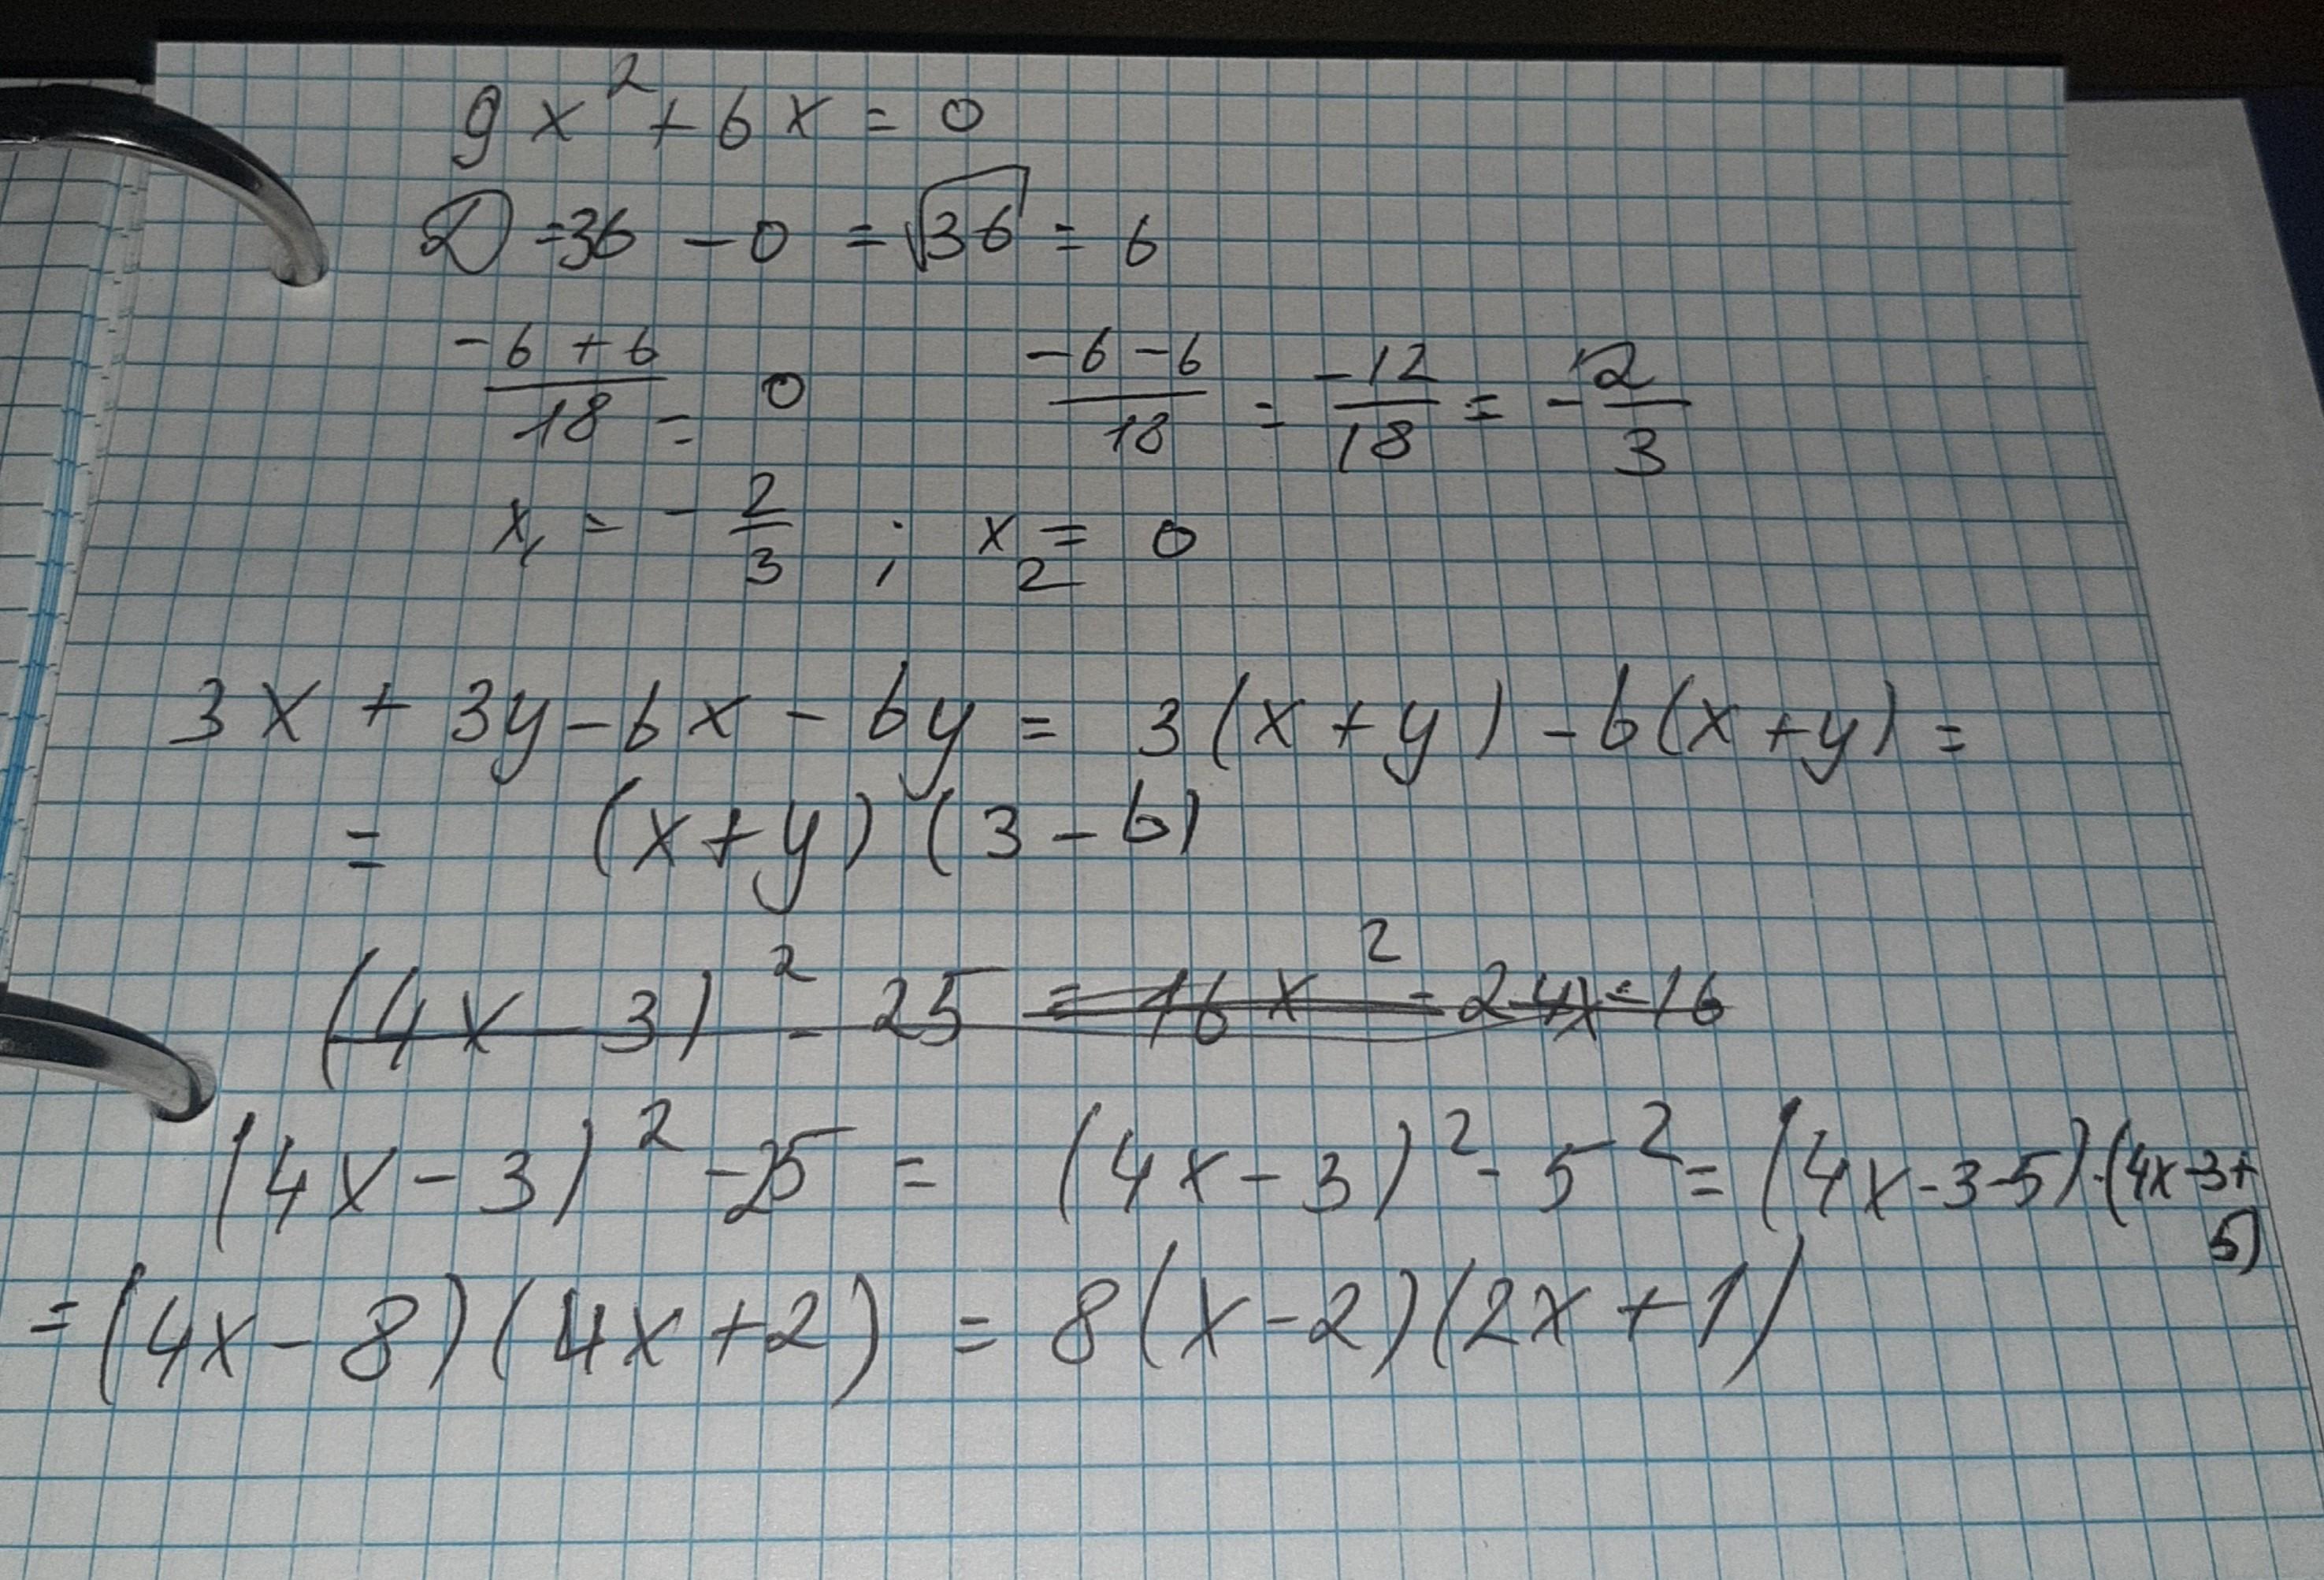 9x² + 6x = 0
D = 36 - 0 = √36 = 6
(-6 + 6)/18 = 0   (-6 - 6)/18 = -12/18 = -2/3
x₁ = -2/3 ; x₂ = 0
3x + 3y - bx - by = 3(x + y) - b(x + y) =
= (x + y) (3 - b)
(4x - 3)² - 25 = 16x² - 24x - 16
(4x - 3)² - 25 = (4x - 3)² - 5² = (4x - 3 - 5) · (4x - 3 + 5)
= (4x - 8) (4x + 2) = 8(x - 2)(2x + 1)